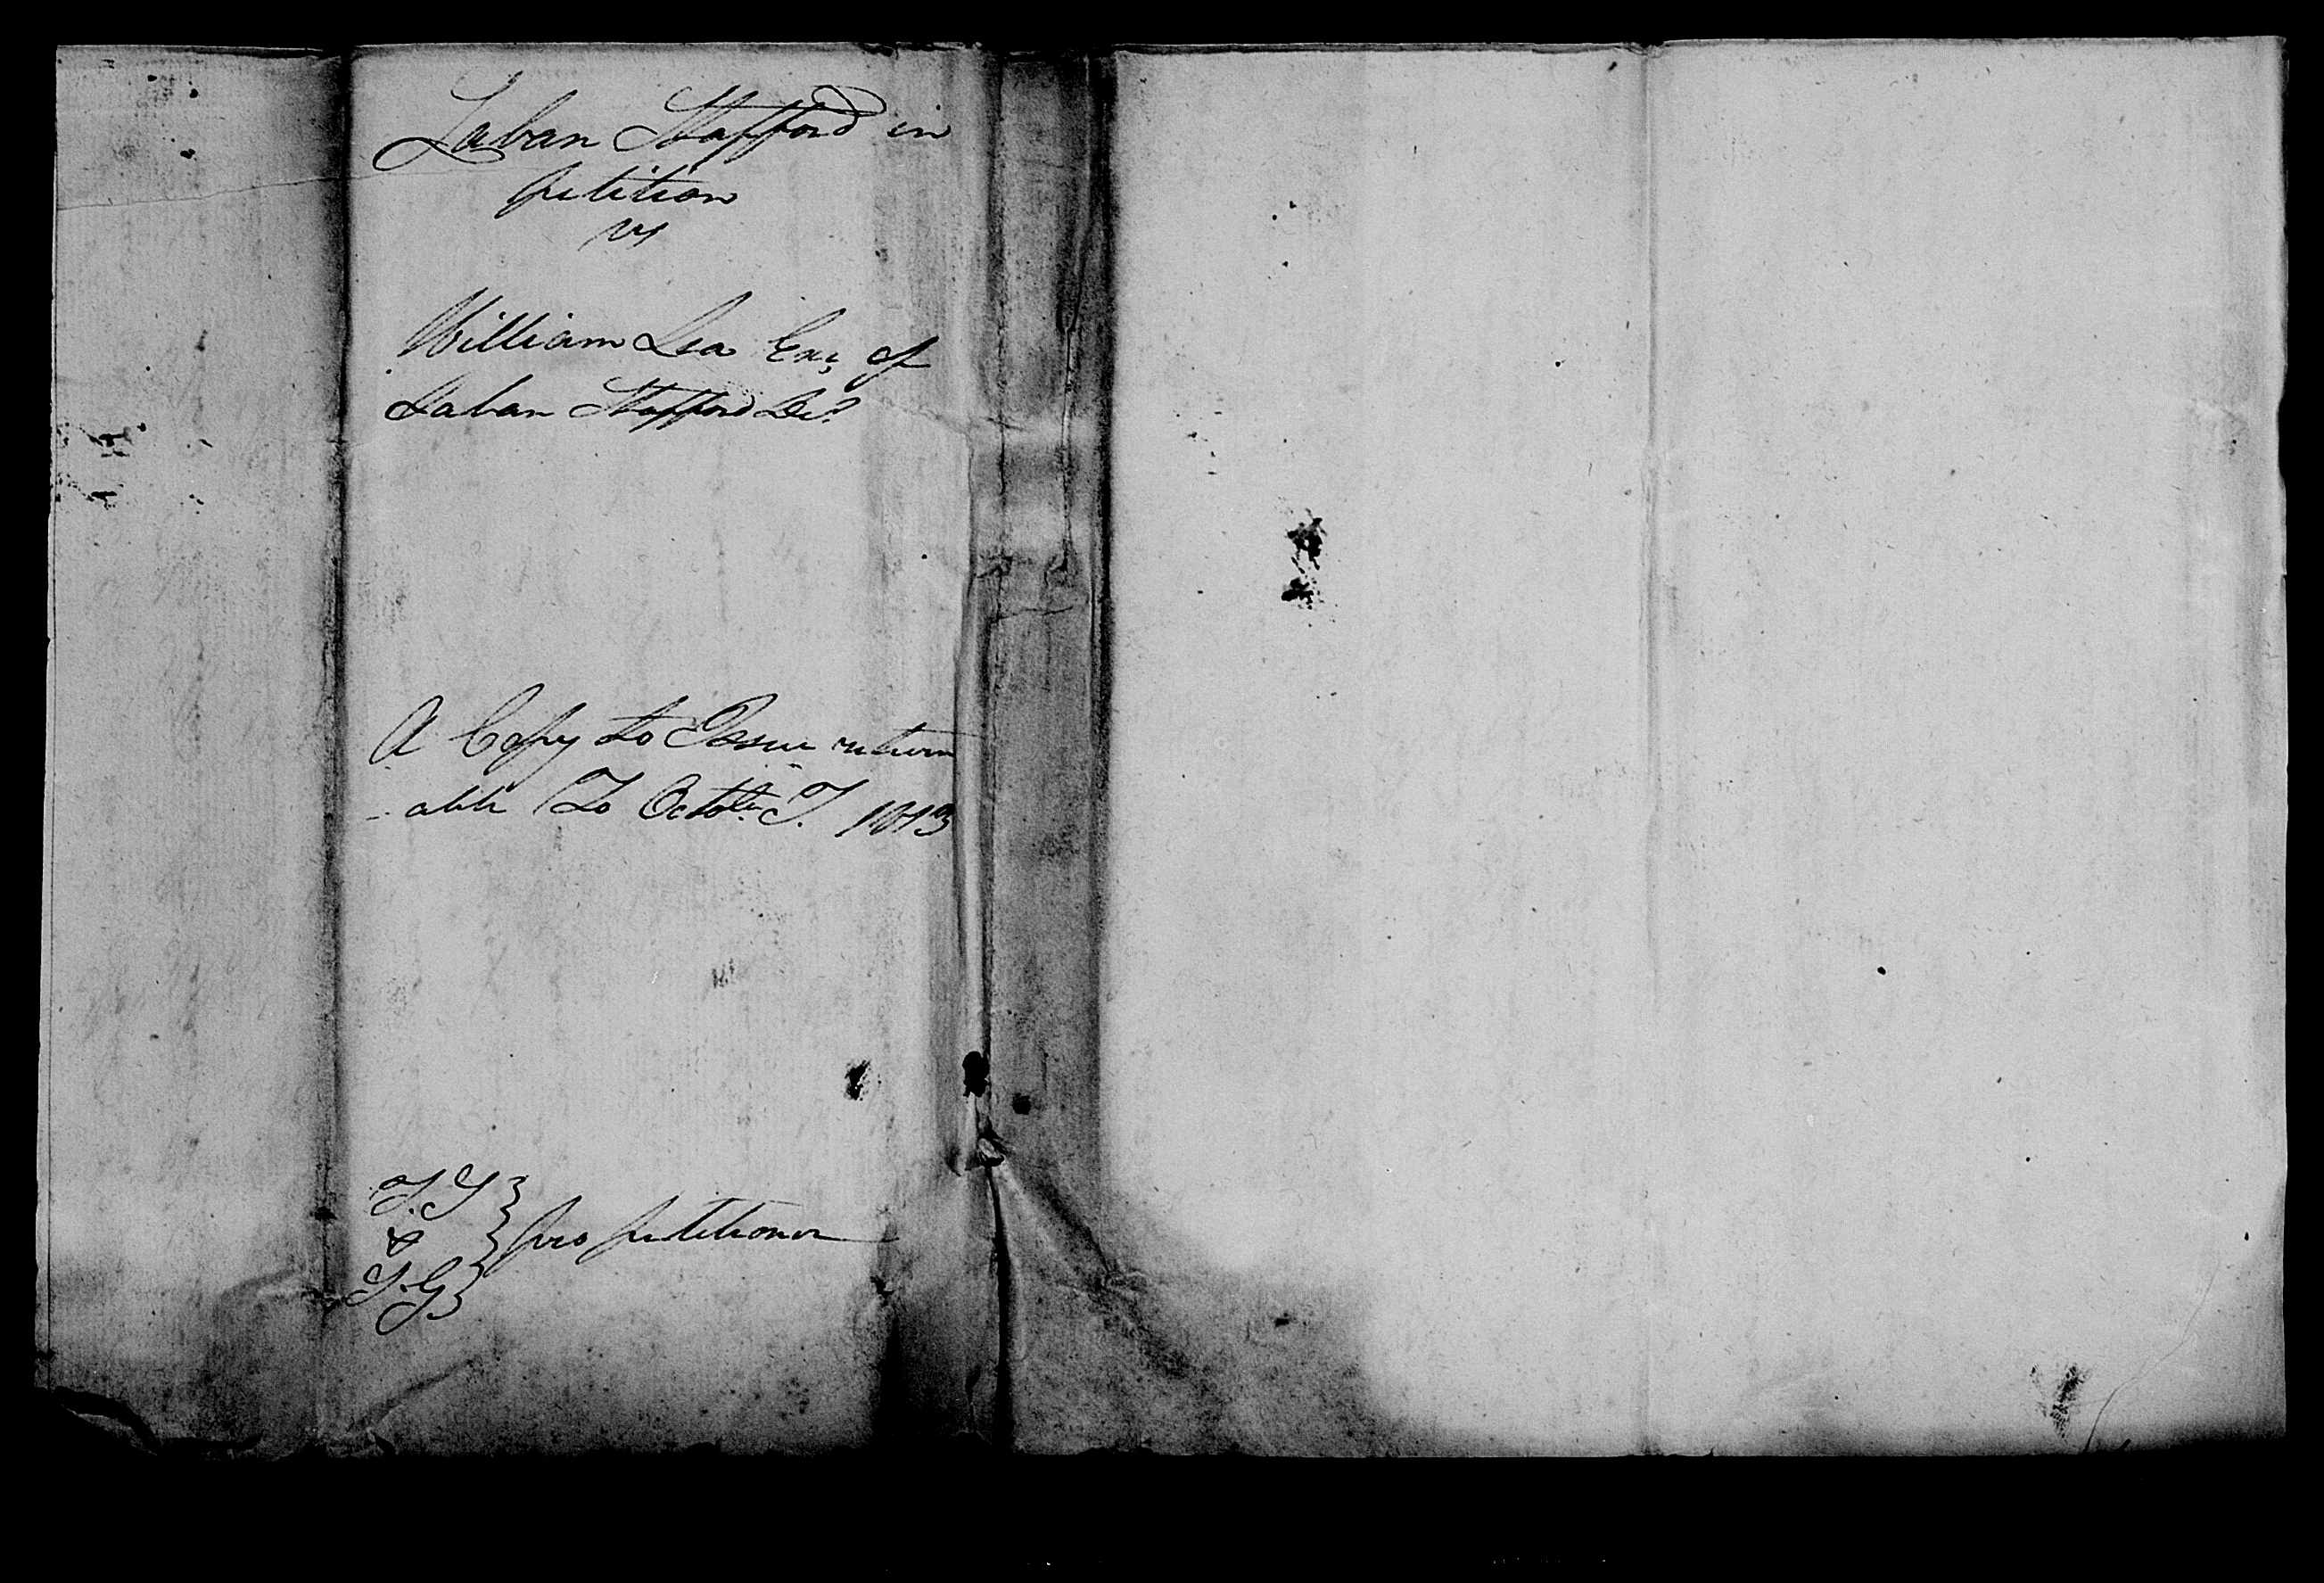 Laban Stafford in
petition
vs
William Lea Exr of
Laban Stafford Decd
A Copy to Issue return
-able To Octobr T. 1813
T. S
&
S. G
pro petitioner